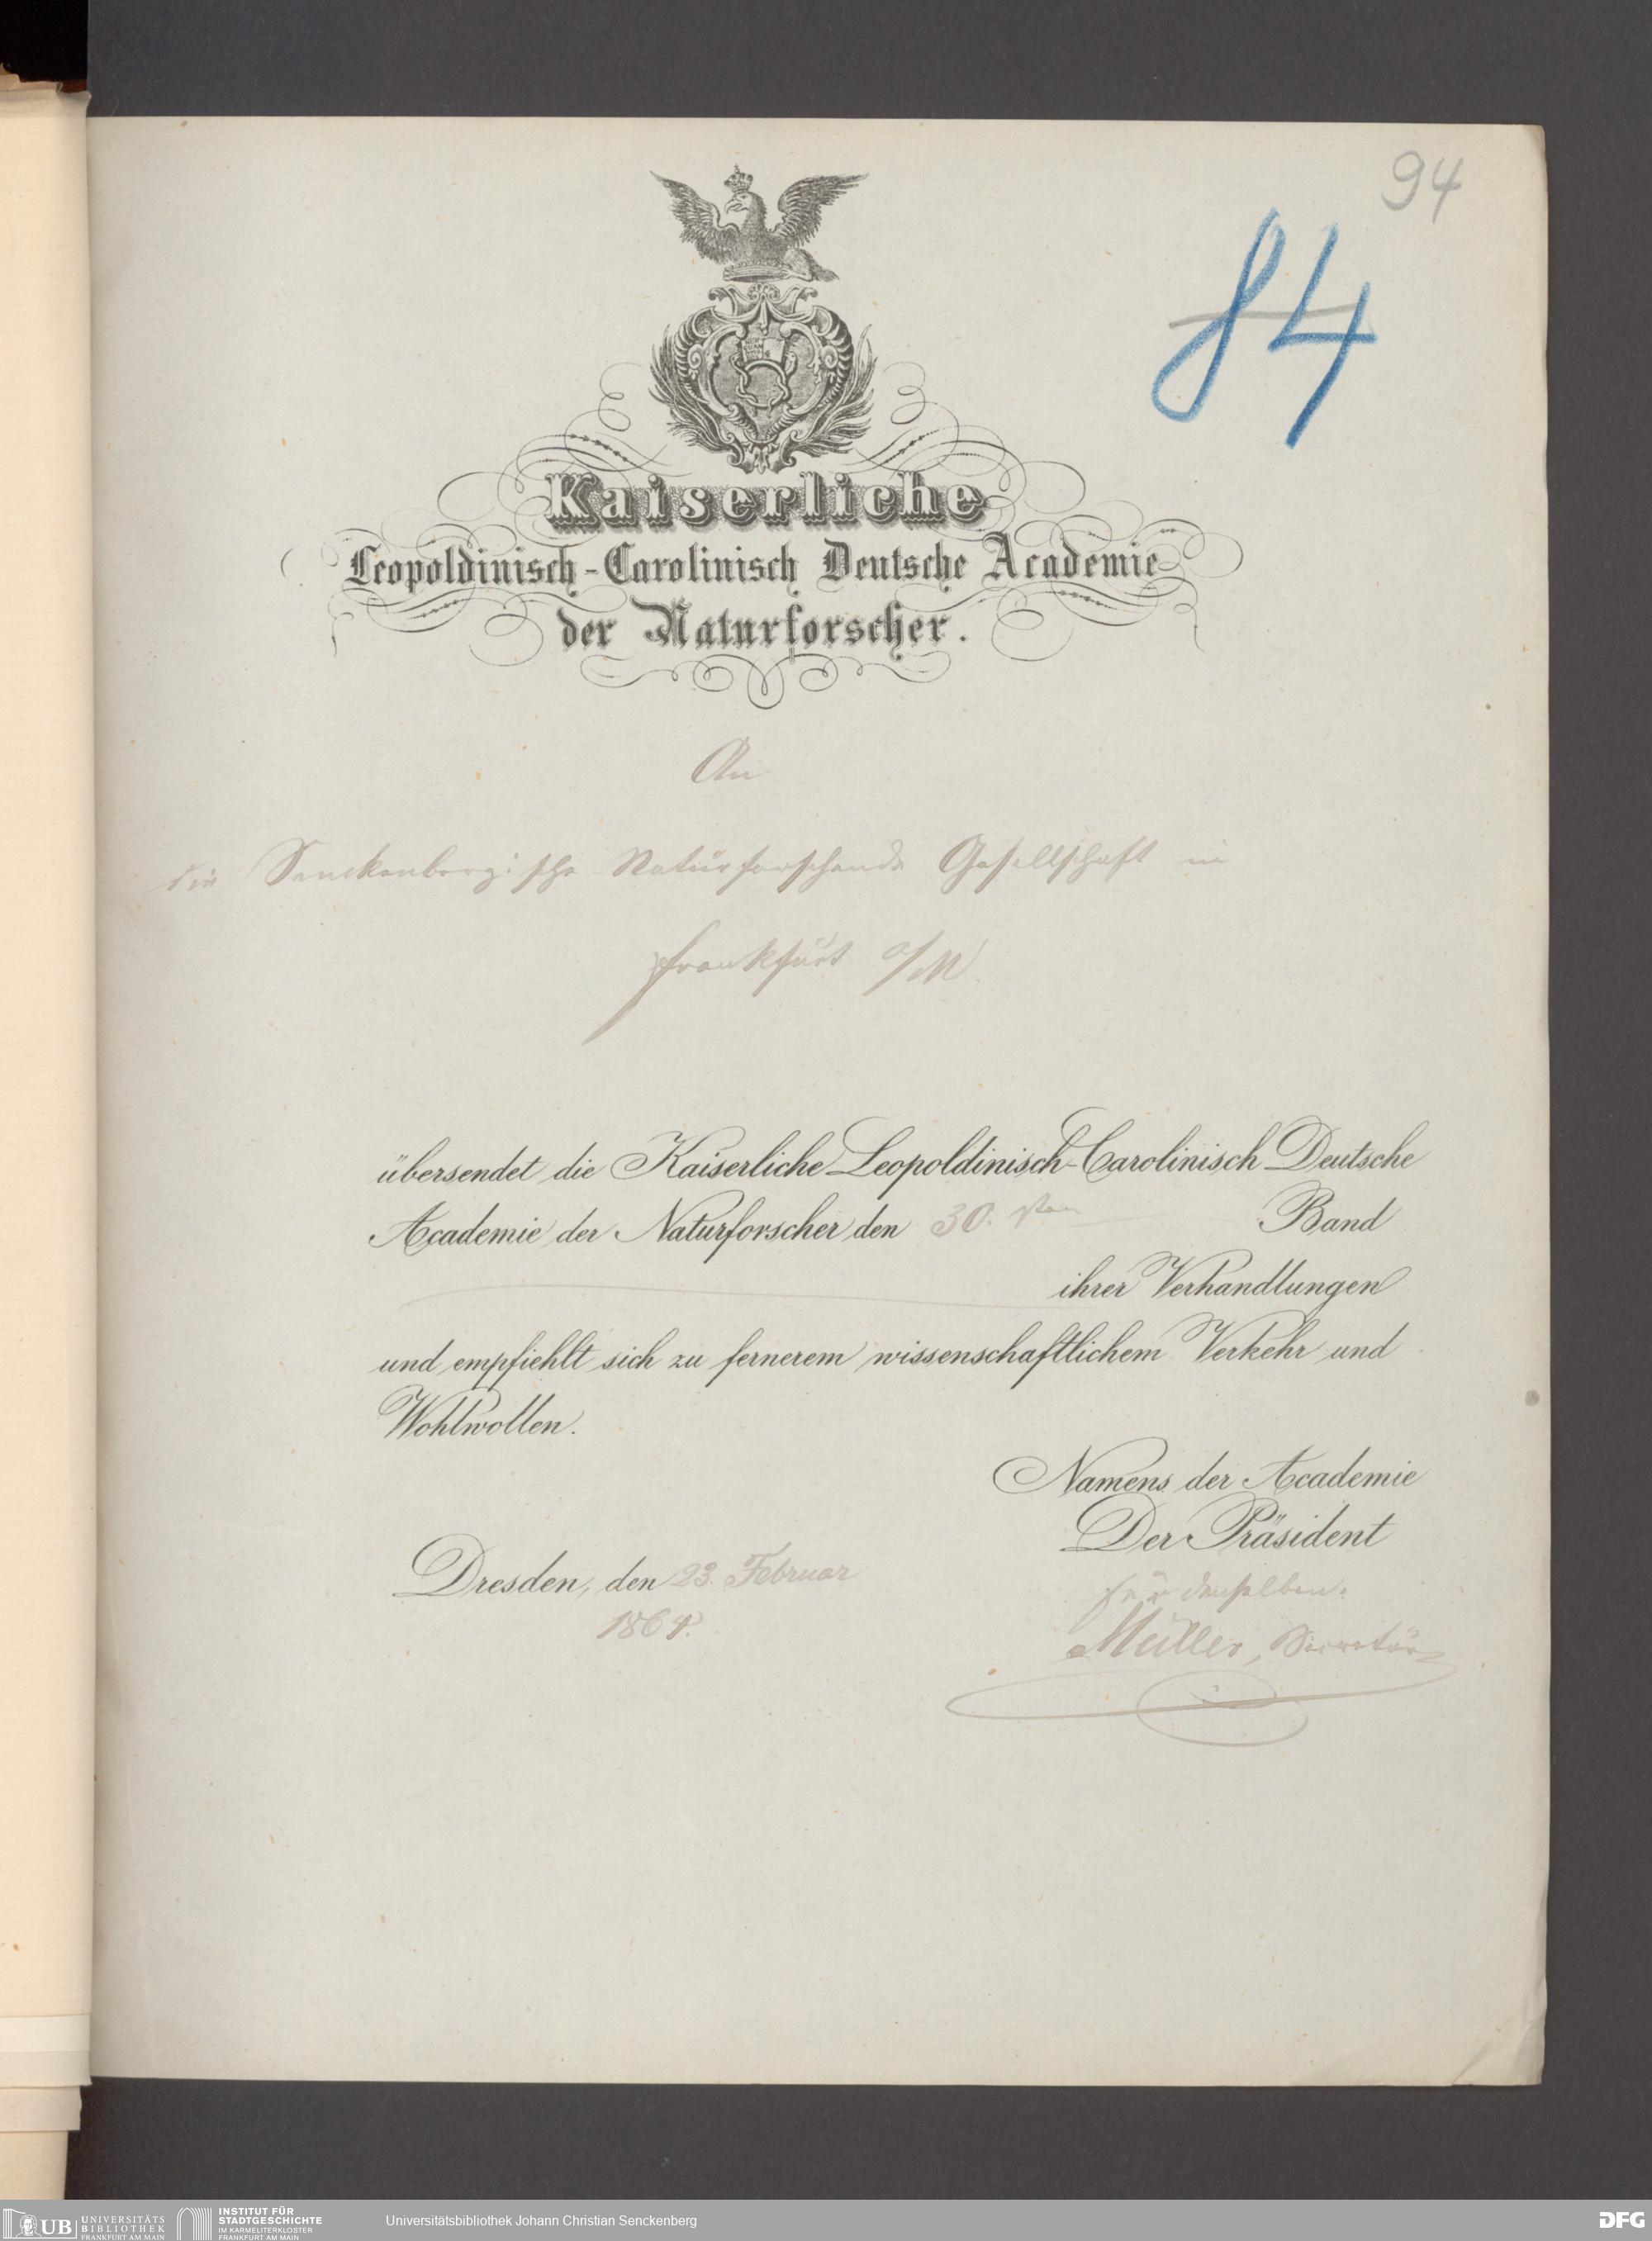 94
84
Kaiserliche
Leopoldinisch-Carolinisch Deutsche Academie
der Naturforscher.
An
die Senckenberg'sche Naturforschende Gesellschaft in
Frankfurt a/M
übersendet die Kaiserliche Leopoldinisch-Carolinisch Deutsche
Academie der Naturforscher den 30. sten Band
ihrer Verhandlungen
und empfiehlt sich zu fernerem wissenschaftlichem Verkehr und
Wohlwollen.
Namens der Academie
Der Präsident
Dresden, den 23. Februar
1864.
für denselben.
Müller, Secretär
UB UNIVERSITÄTS
BIBLIOTHEK
FRANKFURT AM MAIN
INSTITUT FÜR
STADTGESCHICHTE
IM KARMELITERKLOSTER
FRANKFURT AM MAIN
Universitätsbibliothek Johann Christian Senckenberg
DFG